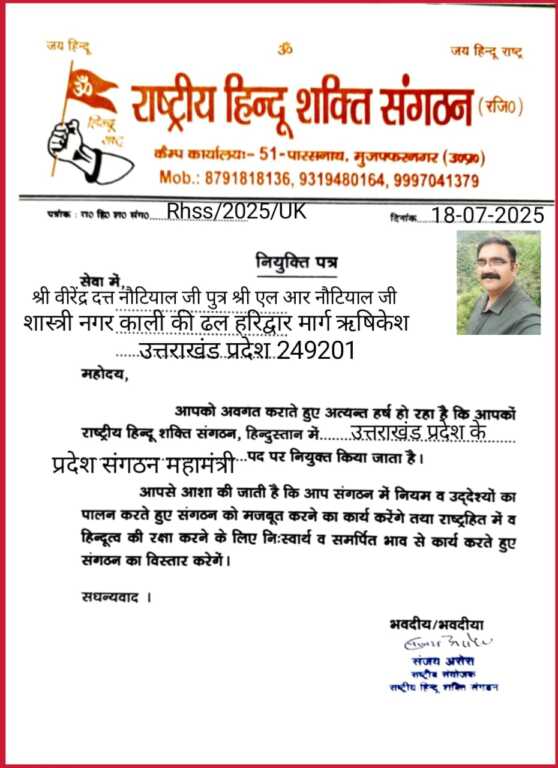 जय हिन्दू
ॐ
जय हिन्दू राष्ट्र
ॐ
हिन्दू
राष्ट्र
राष्ट्रीय हिन्दू शक्ति संगठन (रजि०)
कैम्प कार्यालयः- 51-पारसनाथ, मुजफ्फरनगर (उ०प्र०)
Mob.: 8791818136, 9319480164, 9997041379
पत्रांक : रा० हि० श० सं०....Rhss/2025/UK
दिनांक....18-07-2025
नियुक्ति पत्र
सेवा में,
श्री वीरेंद्र दत्त नौटियाल जी पुत्र श्री एल आर नौटियाल जी
शास्त्री नगर काली की ढल हरिद्वार मार्ग ऋषिकेश
......उत्तराखंड प्रदेश 249201
महोदय,
आपको अवगत कराते हुए अत्यन्त हर्ष हो रहा है कि आपकों
राष्ट्रीय हिन्दू शक्ति संगठन, हिन्दुस्तान में.......उत्तराखंड प्रदेश के......
प्रदेश संगठन महामंत्री...पद पर नियुक्त किया जाता है।
आपसे आशा की जाती है कि आप संगठन में नियम व उद्देश्यों का
पालन करते हुए संगठन को मजबूत करने का कार्य करेंगे तथा राष्ट्रहित में व
हिन्दूत्व की रक्षा करने के लिए निःस्वार्थ व समर्पित भाव से कार्य करते हुए
संगठन का विस्तार करेगें।
सधन्यवाद ।
भवदीय/भवदीया
संजय अरोरा
राष्ट्रीय संयोजक
राष्ट्रीय हिन्दू शक्ति संगठन